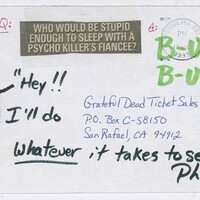 Q:
WHO WOULD BE STUPID
ENOUGH TO SLEEP WITH A
PSYCHO KILLER'S FIANCEE?
A:
B-U
B-U
PM
"Hey!!
I'll do
whatever it takes to se
Ph
Grateful Dead Ticket Sales
P.O. Box C-S8150
San Rafael, CA 94912